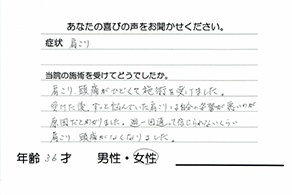 あなたの喜びの声をお聞かせください。
症状 肩こり
当院の施術を受けてどうでしたか。
肩こり、頭痛がひどくて施術を受けました。
受けた後、ずっと悩んでいた肩こりは自分の姿勢が悪いのが
原因だとわかりました。週一回通って信じられないくらい
肩こり、頭痛がなくなりました。
年齢 36才 男性・女性